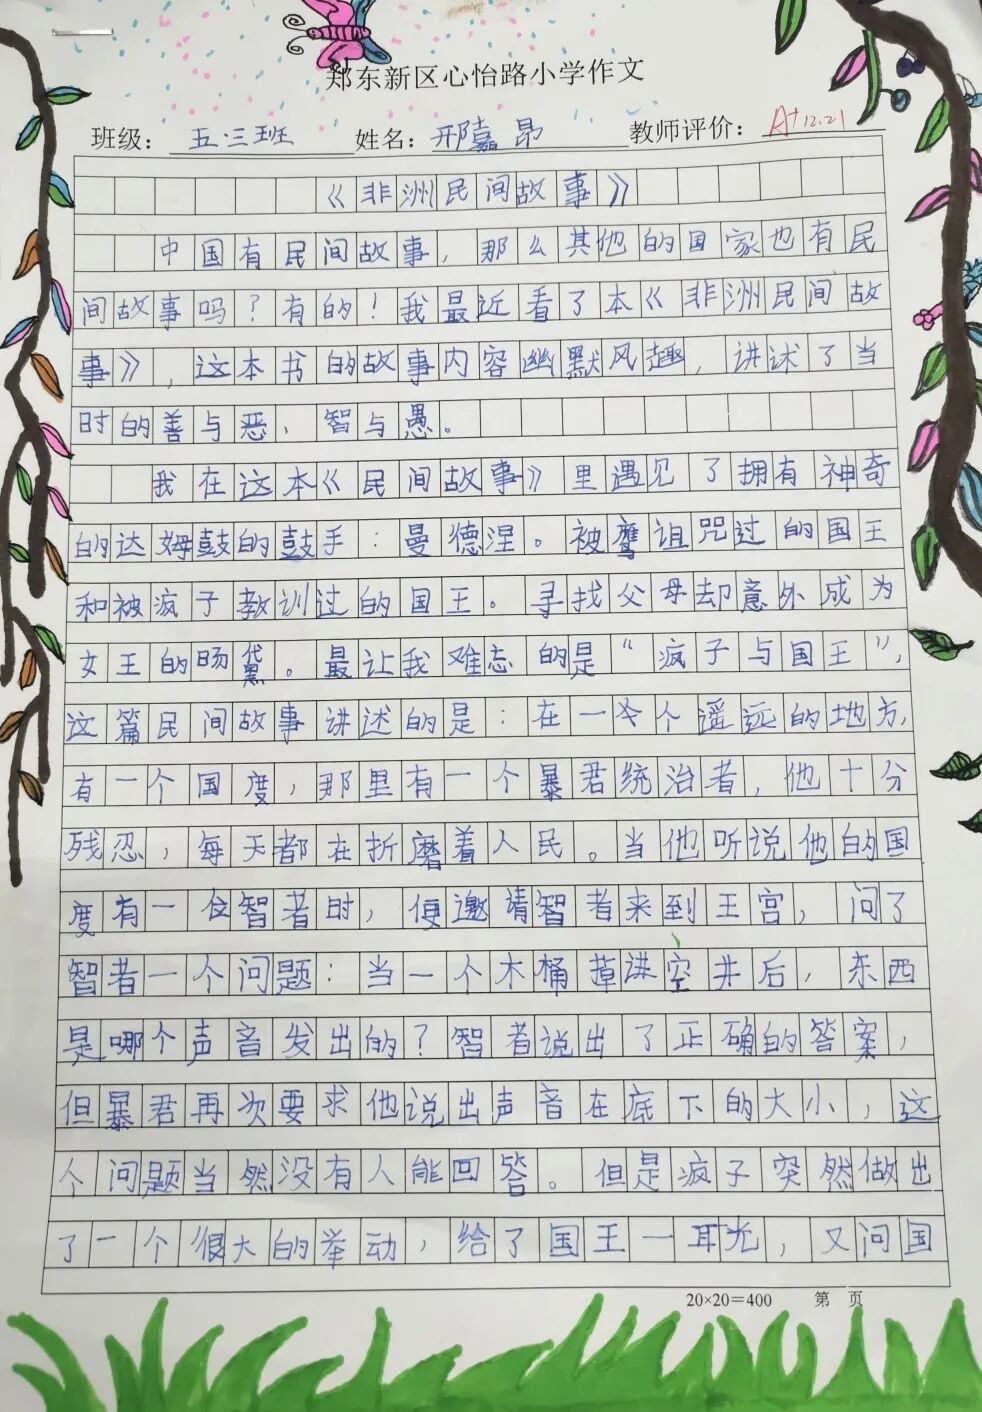 郑东新区心怡路小学作文
班级：五.三班 姓名：邢嘉昂 教师评价：A+ 12.21
《非洲民间故事》
中国有民间故事，那么其他的国家也有民
间故事吗？有的！我最近看了本《非洲民间故
事》，这本书的故事内容幽默风趣，讲述了当
时的善与恶、智与愚。
我在这本《民间故事》里遇见了拥有神奇
的达姆鼓的鼓手：曼德涅。被鹰诅咒过的国王
和被疯子教训过的国王。寻找父母却意外成为
女王的旸黛。最让我难忘的是“疯子与国王”，
这篇民间故事讲述的是：在一个遥远的地方，
有一个国度，那里有一个暴君统治者，他十分
残忍，每天都在折磨着人民。当他听说他的国
度有一位智者时，便邀请智者来到王宫，问了
智者一个问题：当一个木桶掉进空井后，东西
是哪个声音发出的？智者说出了正确的答案，
但暴君再次要求他说出声音在底下的大小，这
个问题当然没有人能回答。但是疯子突然做出
了一个很大的举动，给了国王一耳光，又问国
20×20=400 第 页